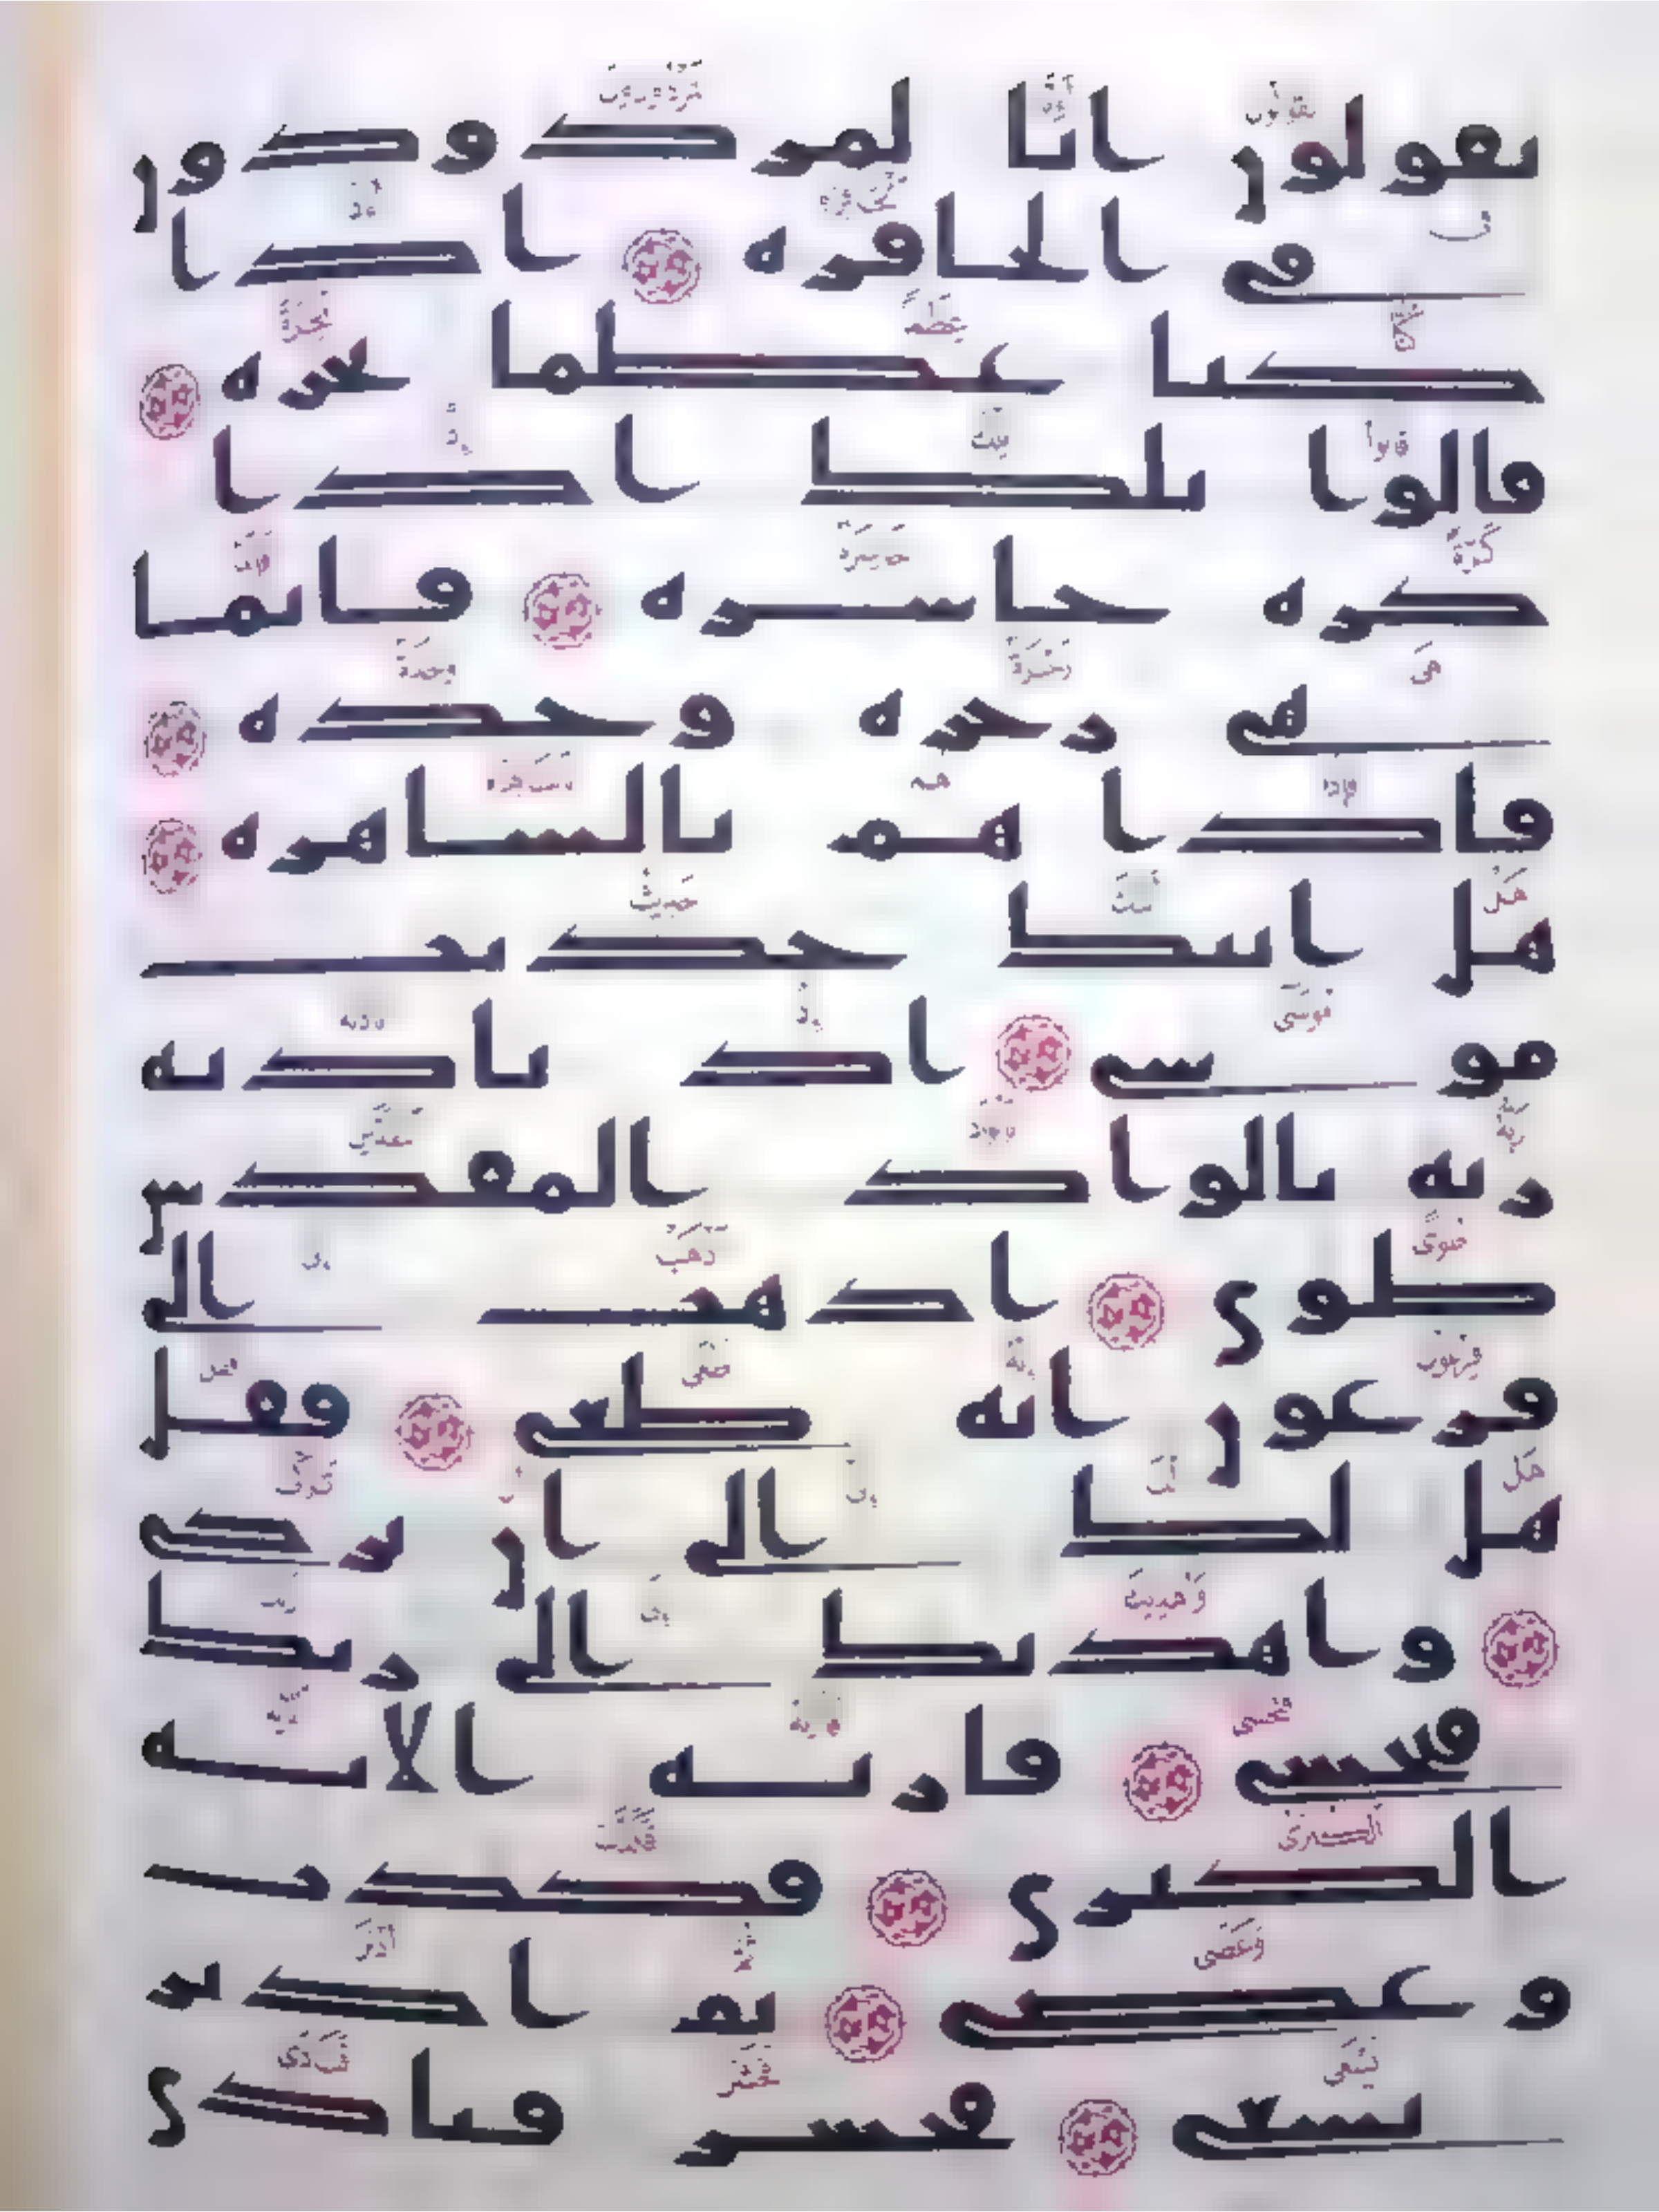 يقولون انا لمردودون
في الحافره اذا
كنا عظما نخره
قالوا تلك اذا
كره خاسره فانما
هي زجره وحده
فاذا هم بالساهره
هل اتيك حديث
موسى اذ ناديه
ربه بالواد المقدس
طوى اذهب الى
فرعون انه طغى فقل
هل لك الى ان تزكى
واهديك الى ربك
فتخشى فاريه الايه
الكبرى فكذب
وعصى ثم ادبر
يسعى فحشر فنادى